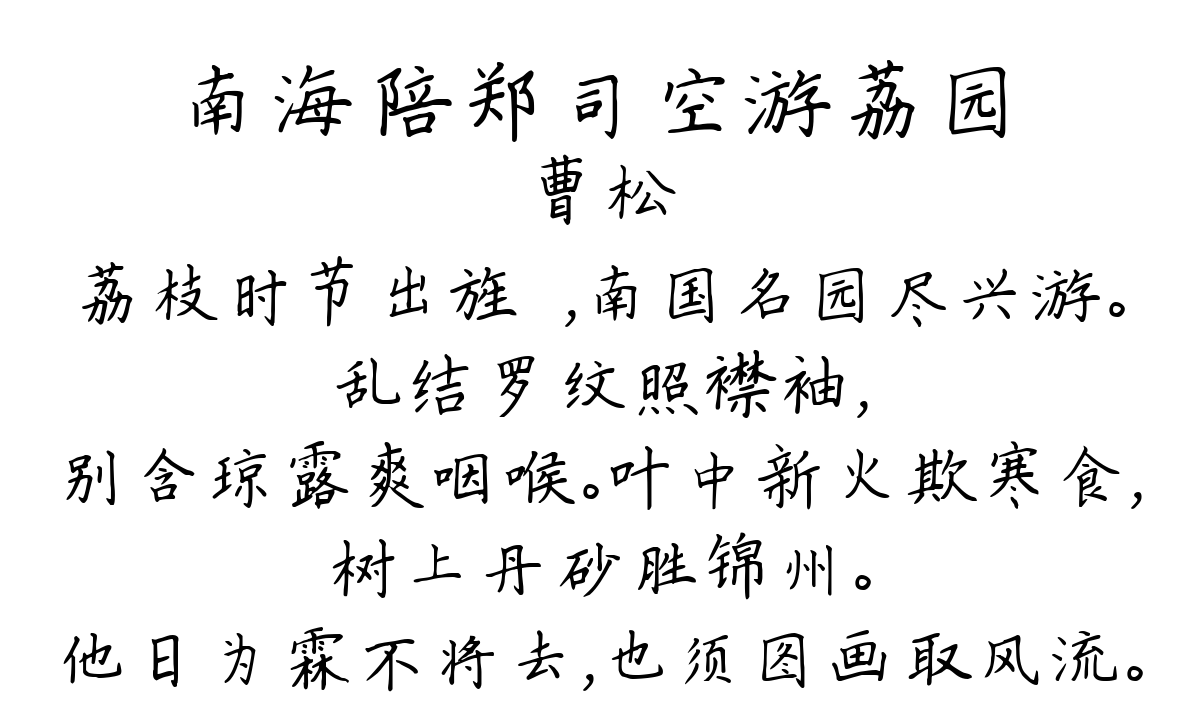 南海陪郑司空游荔园
曹松
荔枝时节出旌 ,南国名园尽兴游。
乱结罗纹照襟袖,
别含琼露爽咽喉。叶中新火欺寒食,
树上丹砂胜锦州。
他日为霖不将去,也须图画取风流。